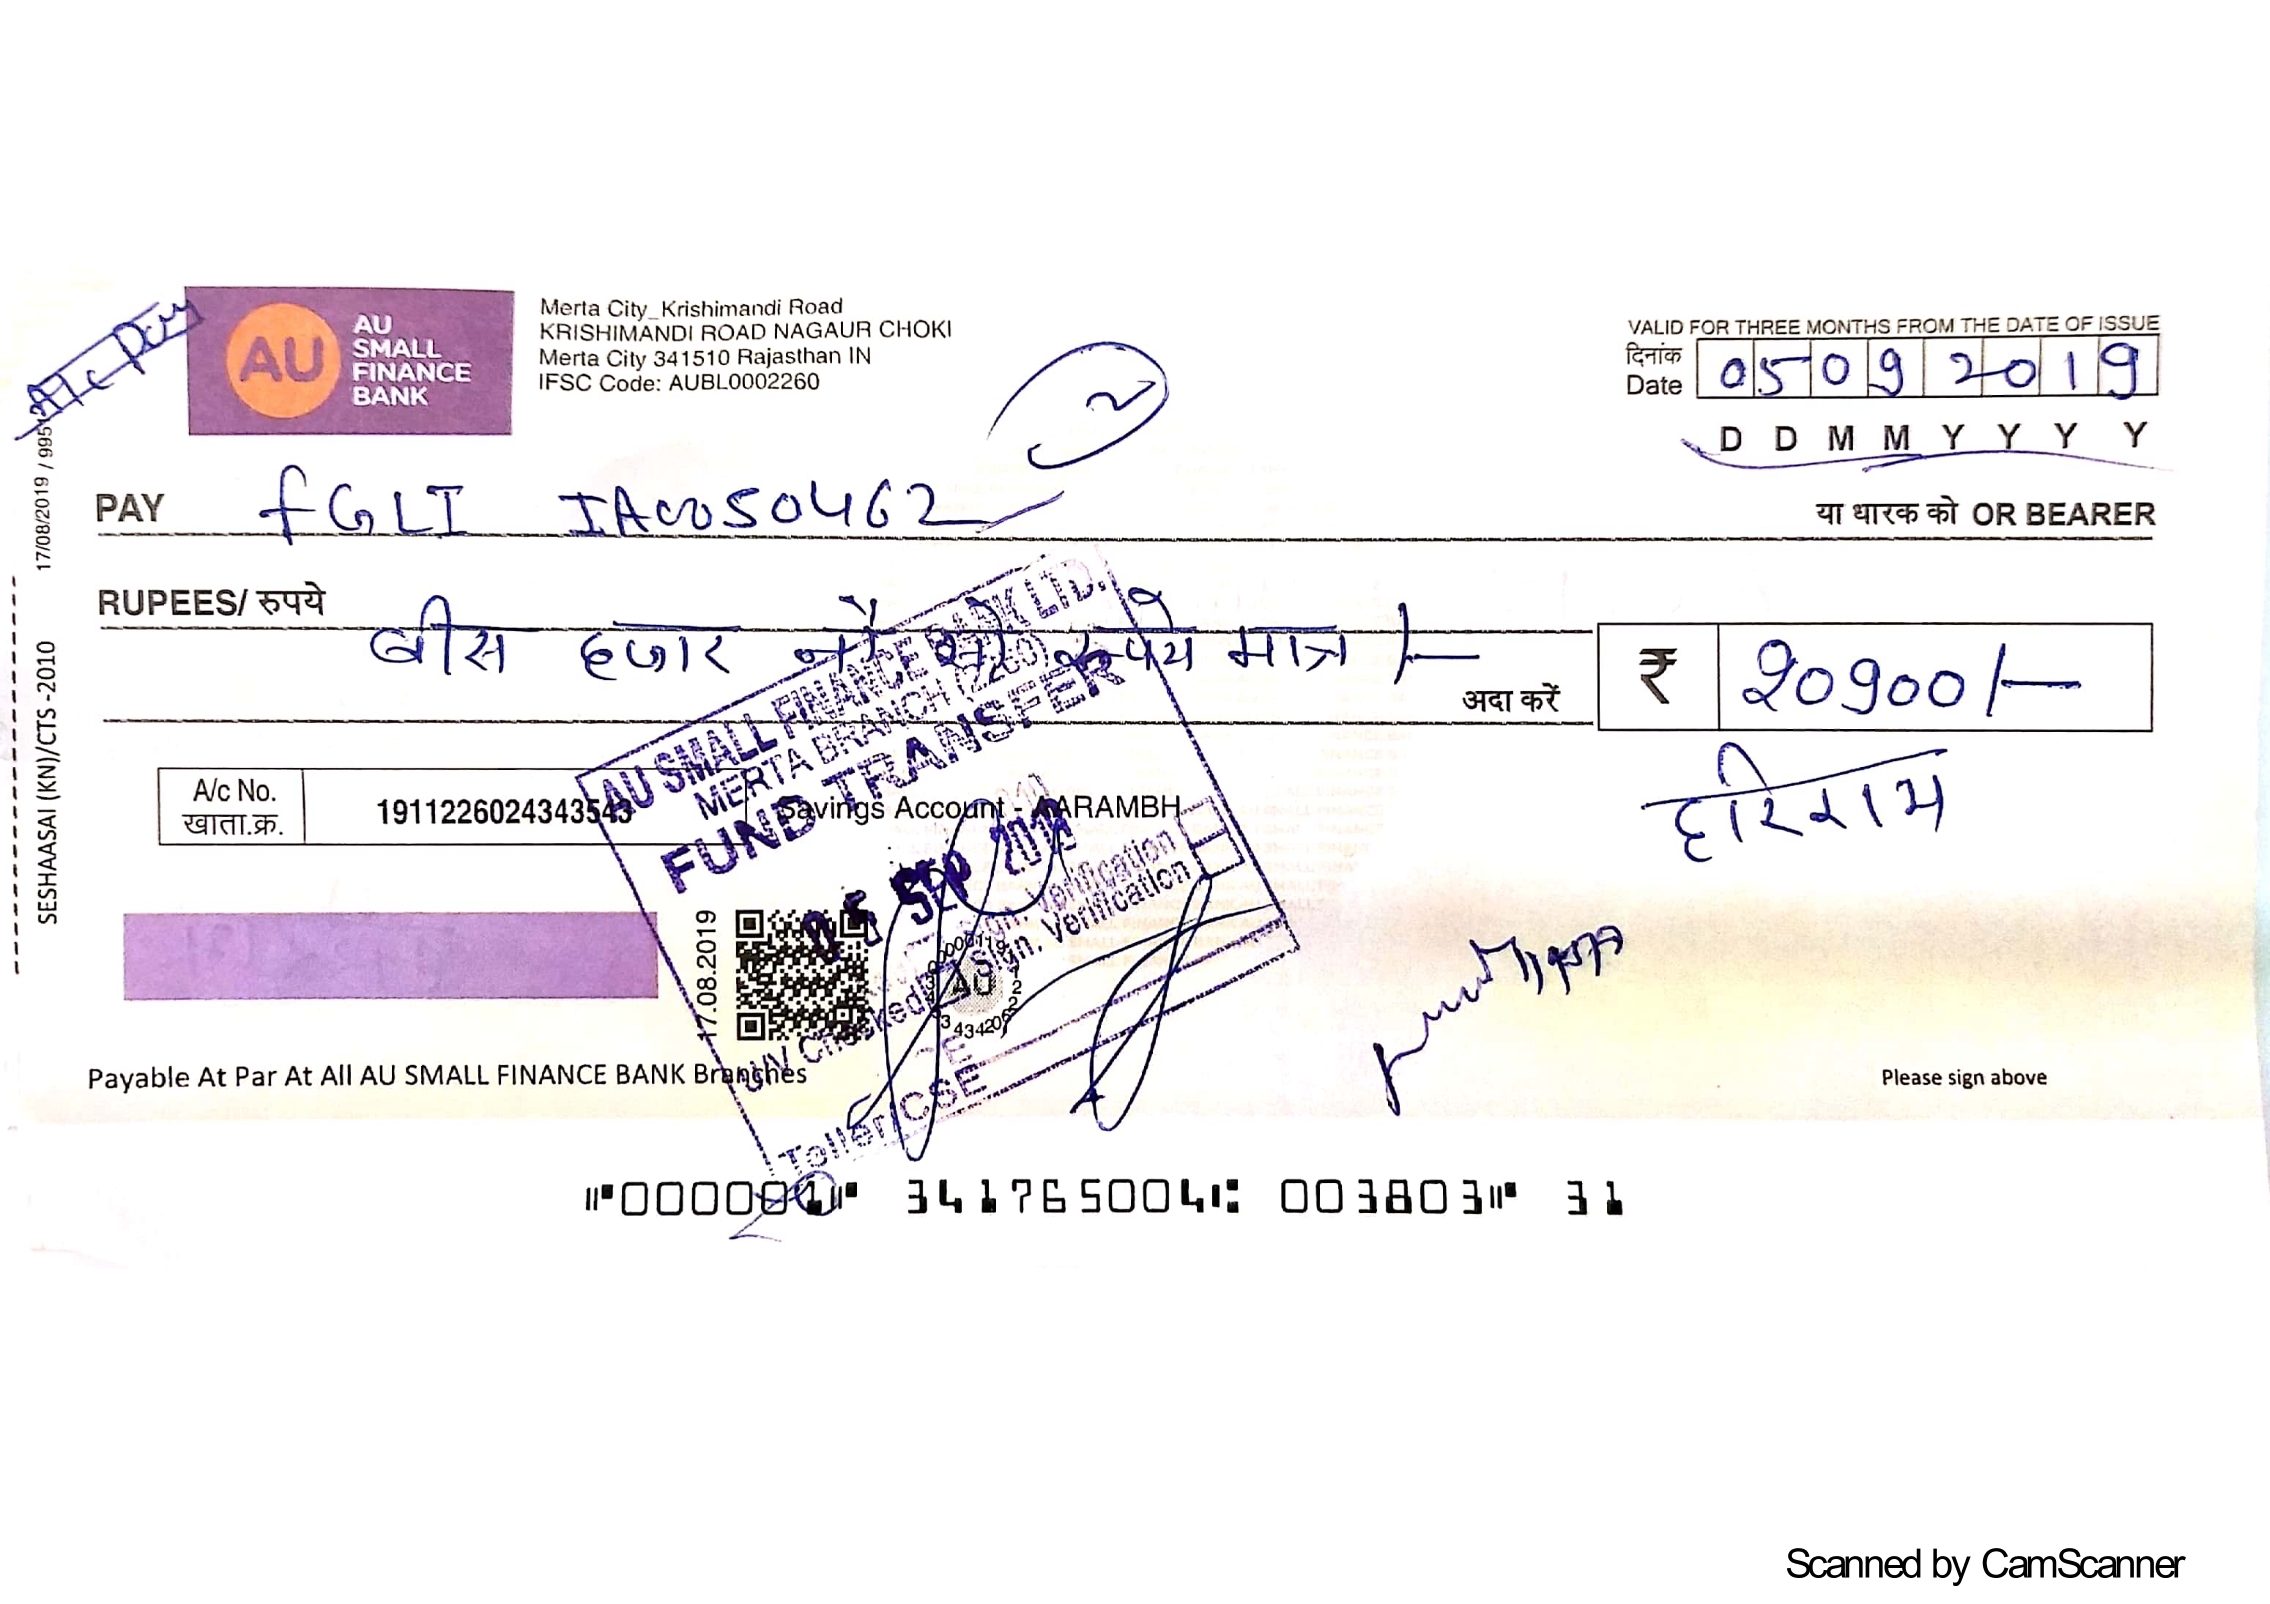 A/c Pay
AU
AU
SMALL
FINANCE
BANK
Merta City_Krishimandi Road
KRISHIMANDI ROAD NAGAUR CHOKI
Merta City 341510 Rajasthan IN
IFSC Code: AUBL0002260
2
VALID FOR THREE MONTHS FROM THE DATE OF ISSUE
दिनांक
Date 05092019
D D M M Y Y Y Y
PAY FGLI IA0050462
या धारक को OR BEARER
RUPEES/ रुपये
बीस हजार नौ सौ रूपये मात्र /-
अदा करें
₹ 20900/-
A/c No.
खाता.क्र.
1911226024343543
Savings Account - AARAMBH
हरिराम
AU SMALL FINANCE BANK LTD.
MERTA BRANCH (2260)
FUND TRANSFER
05 SEP 2019
Sign. Verification
Sign. Verification
UV Checked
Teller/CSE
17.08.2019
AU
Payable At Par At All AU SMALL FINANCE BANK Branches
Please sign above
17/08/2019 / 995
SESHAASAI (KN)/CTS -2010
⑈000001⑈ 341765004⑆ 003803⑈ 31
Scanned by CamScanner